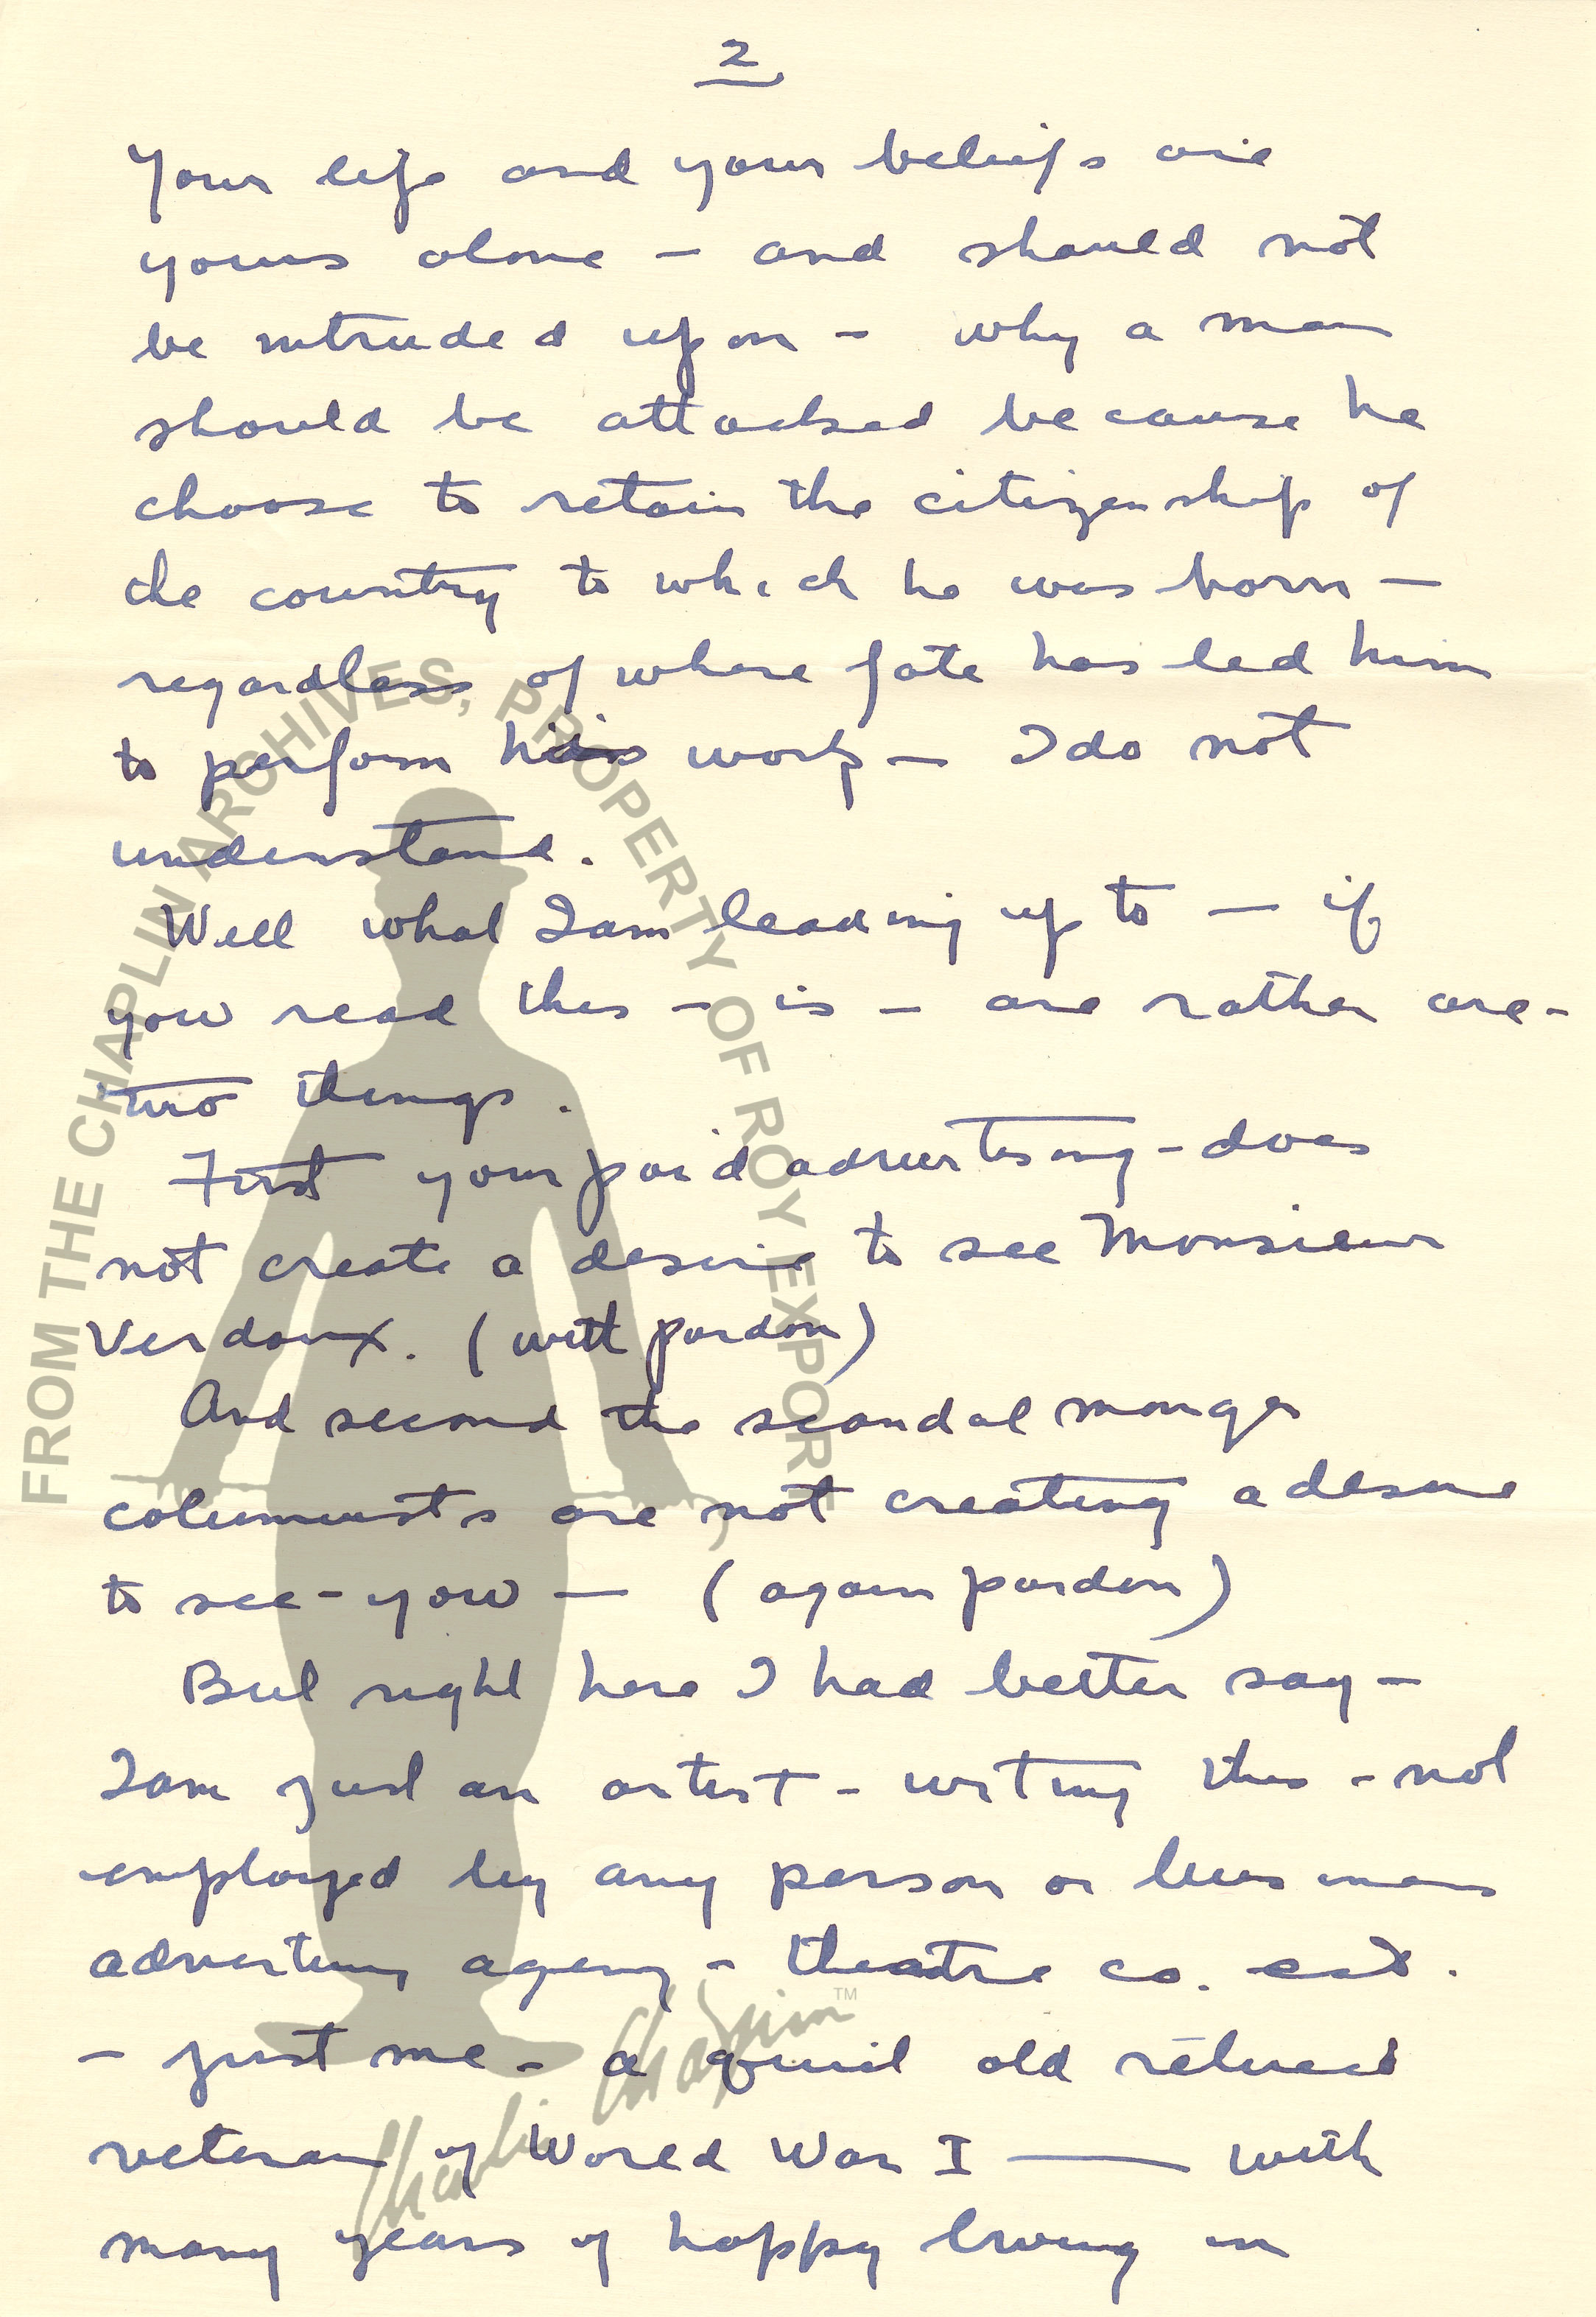 2
Your life and your beliefs are
yours alone – and should not
be intruded upon – why a man
should be attacked because he
choose to retain the citizenship of
the country to which he was born –
regardless of where fate has led him
to perform his work – I do not
understand.
Well what I am leading up to – if
you read this – is – are rather are –
two things.
First your paid advertising – does
not create a desire to see Monsieur
Verdoux. (with pardon)
And second the scandal monger
columnists are not creating a desire
to see – you – (again pardon)
But right here I had better say –
I am just an artist – writing this – not
employed by any person or business
advertising agency – theatre co. ect.
– just me – a quiet old retired
veteran of World War I — with
many years of happy living in
FROM THE CHAPLIN ARCHIVES, PROPERTY OF ROY EXPORT
Charlie Chaplin™